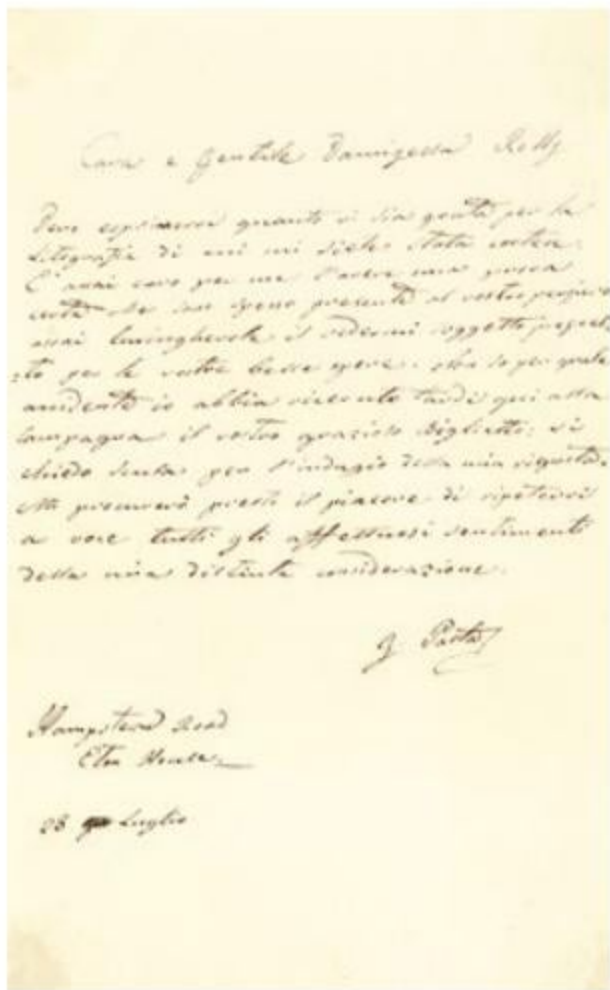 Cara e gentile Damigella
Devo esprimervi quanto vi sia grata per la
Litografia di cui mi siete stata cortese.
È assai caro per me l'avere una prova
certa che son spesso presente al vostro pensiero
assai lusinghevole il vedermi soggetto
to per le vostre belle opere. Non so per quale
accidente io abbia ricevuto tardi qui alla
Campagna il vostro grazioso biglietto; vi
chiedo scusa per l'indugio della mia risposta.
Mi procurerò presto il piacere di ripetervi
a voce tutti gli affettuosi sentimenti
della mia distinta considerazione.
Pasta
Hampstead Road
House
28 Luglio